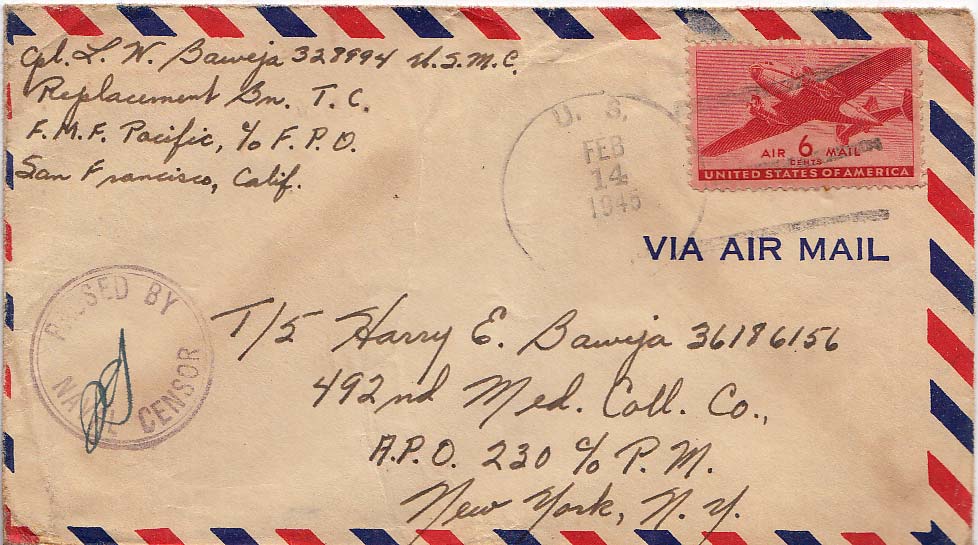 Cpl. L. W. Baweja 328994 U.S.M.C.
Replacement Bn. T. C.
F.M.F. Pacific, c/o F.P.O.
San Francisco, Calif.
U. S.
FEB
14
1945
AIR 6 MAIL
CENTS
UNITED STATES OF AMERICA
VIA AIR MAIL
PASSED BY
NAVAL CENSOR
T/5 Harry E. Baweja 36186156
492nd Med. Coll. Co.,
A.P.O. 230 c/o P.M.
New York, N.Y.